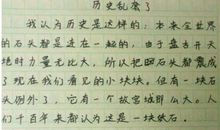 历史乱套了
我认为历史是这样的：本来全世界
的石头都是连在一起的，由于盘古开天
地时力量无比大，所以把圆石头都震成
了现在我们看见的小块块。但有一块石
头例外了，它有一个故宫城那么大，人
们千百年来都认为这是一块纸石。